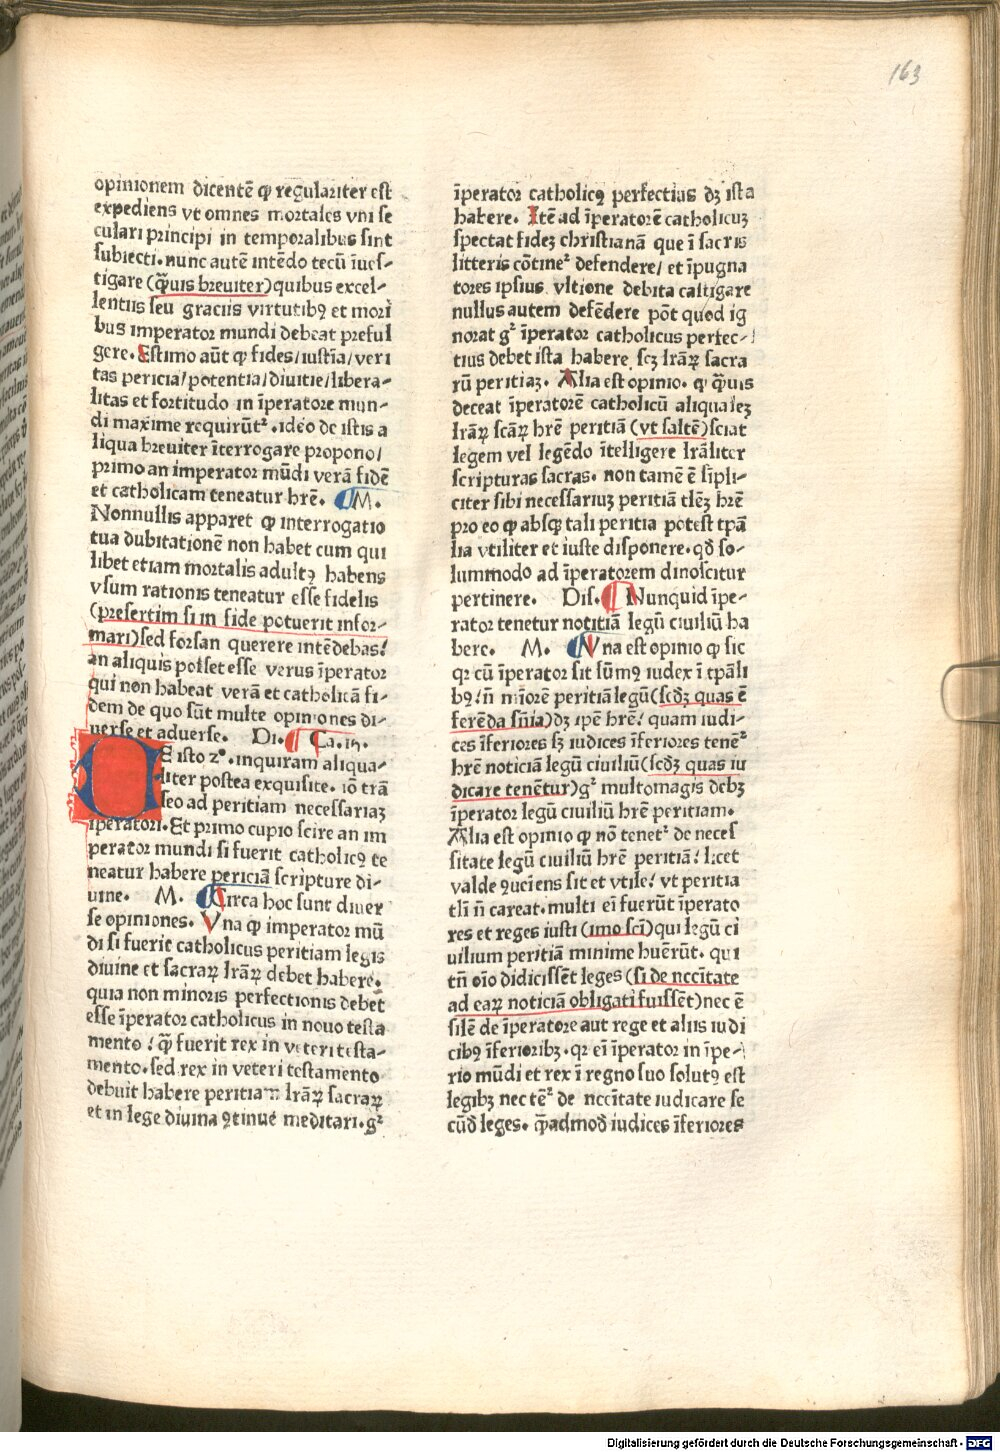 163
opinionem dicentē ꝙ regulariter est
expediens vt omnes mortales vni se
culari principi in temporalibus sint
subiecti. nunc autē intēdo tecū īues-
tigare (q̄uis breuiter) quibus excel-
lentiis seu graciis virtutibꝫ et mori
bus imperator mundi debeat preful
gere. Estimo aūt ꝙ fides/iustīa/veri
tas pericia/potentia/diuitie/libera-
litas et fortitudo in īperatore mun-
di maxime requirūtᷣ. ideo de istis a
liqua breuiter īterrogare propono/
primo an imperator mūdi verā fidē
et catholicam teneatur hr̄e. M.
Nonnullis apparet ꝙ interrogatio
tua dubitationē non habet cum qui
libet etiam mortalis adultꝰ habens
vsum rationis teneatur esse fidelis
(presertim si in fide potuerit infor-
mari) sed forsan querere intēdebas!
an aliquis posset esse verus īperator
qui non habeat verā et catholicā fi-
dem de quo sūt multe opiniones di-
uerse et aduerse. Di. Ca. iꝫ.
DE isto 2°. inquiram aliqua-
liter postea exquisite. iō trā
seo ad peritiam necessariaꝫ
īperatori. Et primo cupio scire an im
perator mundi si fuerit catholicꝰ te
neatur habere periciā scripture di-
uine. M. Circa hoc sunt diuer
se opiniones. Vna ꝙ imperator mū
di si fuerit catholicus peritiam legis
diuine et sacraꝝ lr̄aꝝ debet habere.
quia non minoris perfectionis debet
esse īperator catholicus in nouo testa
mento! q̄ꝫ fuerit rex in veteri testa-
mento. sed rex in veteri testamento
debuit habere peritiam lr̄aꝝ sacraꝝ
et in lege diuina ꝯtinue meditari. gᷣ
īperator catholicꝰ perfectius dꝫ ista
habere. Itē ad īperatorē catholicuꝫ
spectat fideꝫ christianā que ī sacris
litteris cōtineᷣ defendere/ et īpugna
tores ipsius vltione debita castigare
nullus autem defēdere pōt quod ig
norat gᷣ īperator catholicus perfec-
tius debet ista habere scꝫ lr̄aꝝ sacra
rū peritiaꝫ. Alia est opinio. ꝙ q̄uis
deceat īperatorē catholicū aliqualeꝫ
lr̄aꝝ scāꝝ hr̄e peritiā (vt saltē) sciat
legem vel legēdo ītelligere lr̄aliter
scripturas sacras. non tamē ē sīpli-
citer sibi necessariuꝫ peritiā tlēꝫ hr̄e
pro eo ꝙ absqꝫ tali peritia potest tpā
lia vtiliter et iuste disponere. qd̄ so-
lummodo ad īperatorem dinoscitur
pertinere. Dis. Nunquid īpe-
rator tenetur notitiā legū ciuiliū ha
bere. M. Una est opinio ꝙ sic
qꝛ cū īperator sit sūmꝰ iudex ī tpāli
bꝰ! n̄ mīorē peritiā legū (scd̄ꝫ quas ē
ferēda sn̄ia) dꝫ ipē hr̄e! quam iudi-
ces īferiores sꝫ iudices īferiores tenēᷣ
hr̄e noticiā legū ciuiliū (scd̄ꝫ quas iu
dicare tenētur) gᷣ multomagis debꝫ
īperator legū ciuiliū hr̄e peritiam.
Alia est opinio ꝙ nō tenetᷣ de necef
sitate legū ciuiliū hr̄e peritiā! licet
valde ꝯueīens sit et vtile! vt peritia
tlī n̄ careat. multi eī fuerūt īperato
res et reges iusti (imo scī) qui legū ci
uilium peritiā minime huerūt. qui
tn̄ oīo didicissēt leges (si de nccītate
ad eaꝝ noticiā obligati fuissēt) nec ē
silē de īperatore aut rege et aliis iudi
cibꝰ īferioribꝫ. qꝛ eī īperator in īpe-
rio mūdi et rex ī regno suo solutꝰ est
legibꝫ nec tēᷣ de nccītate iudicare se
cūd̄ leges. q̄admod̄ iudices īferiores
Digitalisierung gefördert durch die Deutsche Forschungsgemeinschaft - DFG